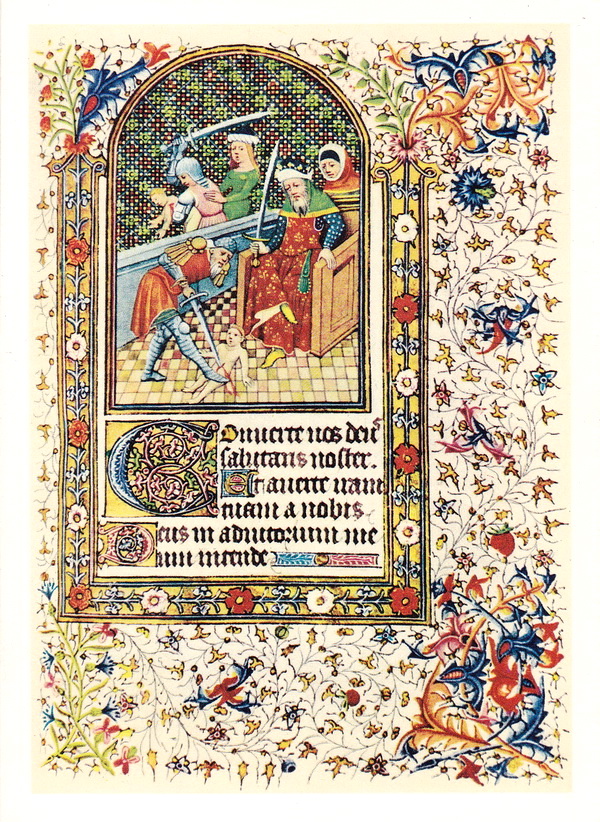 Conuerte nos deus
salutaris noster.
Et auerte iram
tuam a nobis.
Deus in adiutorium me
um intende